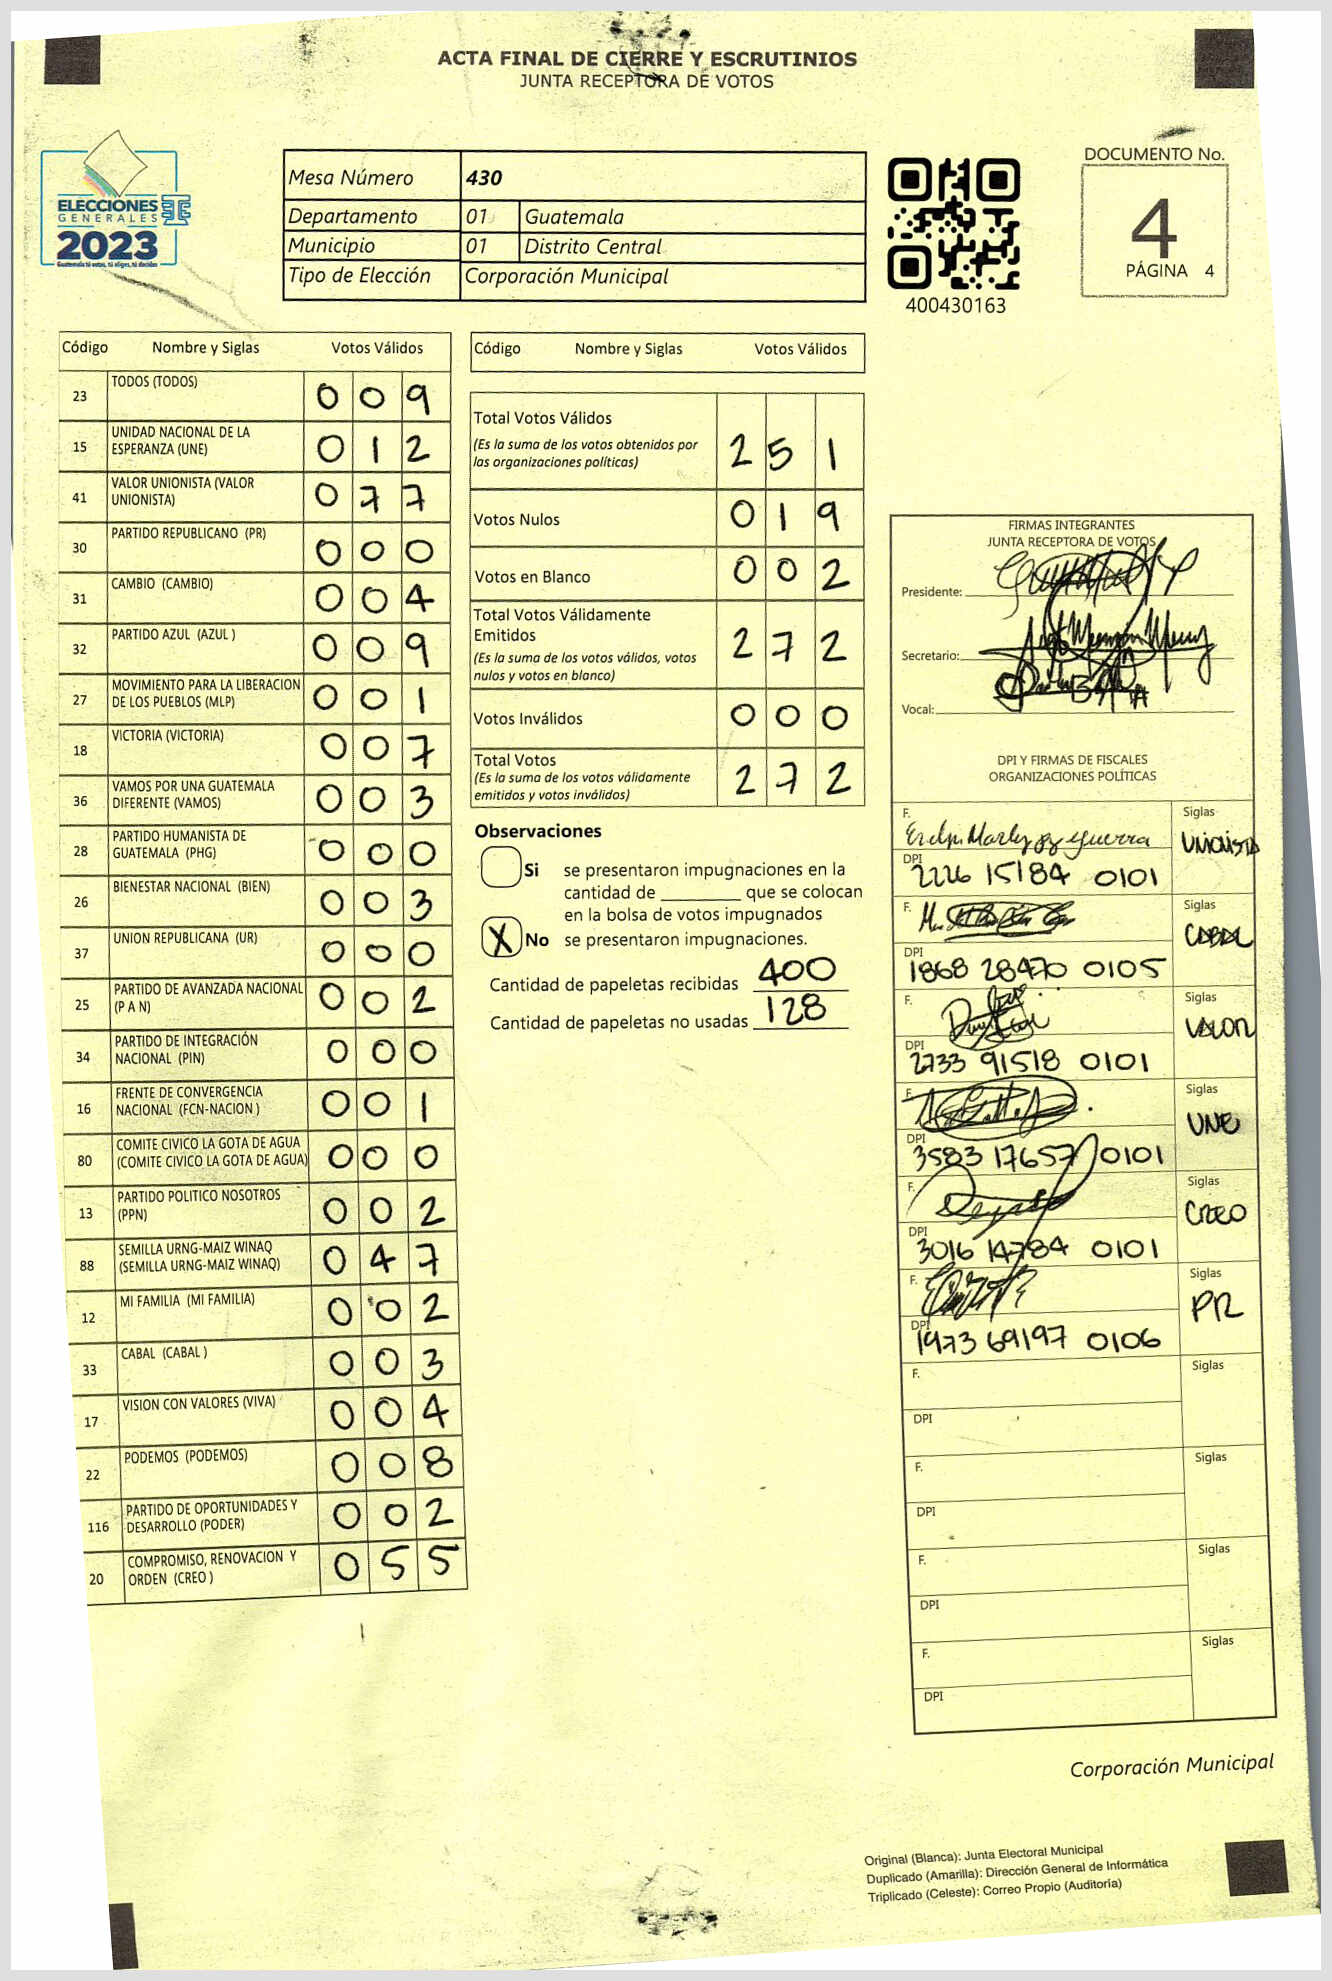 ACTA FINAL DE CIERRE Y ESCRUTINIOS
JUNTA RECEPTORA DE VOTOS
ELECCIONES
GENERALES
2023
Guatemala tú votas, tú eliges, tú decides
Mesa Número 430
Departamento 01 Guatemala
Municipio 01 Distrito Central
Tipo de Elección Corporación Municipal
400430163
DOCUMENTO No.
4
PÁGINA 4
Código Nombre y Siglas Votos Válidos
23 TODOS (TODOS) 0 0 9
15 UNIDAD NACIONAL DE LA
ESPERANZA (UNE) 0 1 2
41 VALOR UNIONISTA (VALOR
UNIONISTA) 0 7 7
30 PARTIDO REPUBLICANO (PR) 0 0 0
31 CAMBIO (CAMBIO) 0 0 4
32 PARTIDO AZUL (AZUL ) 0 0 9
27 MOVIMIENTO PARA LA LIBERACION
DE LOS PUEBLOS (MLP) 0 0 1
18 VICTORIA (VICTORIA) 0 0 7
36 VAMOS POR UNA GUATEMALA
DIFERENTE (VAMOS) 0 0 3
28 PARTIDO HUMANISTA DE
GUATEMALA (PHG) 0 0 0
26 BIENESTAR NACIONAL (BIEN) 0 0 3
37 UNION REPUBLICANA (UR) 0 0 0
25 PARTIDO DE AVANZADA NACIONAL
(P A N) 0 0 2
34 PARTIDO DE INTEGRACIÓN
NACIONAL (PIN) 0 0 0
16 FRENTE DE CONVERGENCIA
NACIONAL (FCN-NACION ) 0 0 1
80 COMITE CIVICO LA GOTA DE AGUA
(COMITE CIVICO LA GOTA DE AGUA) 0 0 0
13 PARTIDO POLITICO NOSOTROS
(PPN) 0 0 2
88 SEMILLA URNG-MAIZ WINAQ
(SEMILLA URNG-MAIZ WINAQ) 0 4 7
12 MI FAMILIA (MI FAMILIA) 0 0 2
33 CABAL (CABAL ) 0 0 3
17 VISION CON VALORES (VIVA) 0 0 4
22 PODEMOS (PODEMOS) 0 0 8
116 PARTIDO DE OPORTUNIDADES Y
DESARROLLO (PODER) 0 0 2
20 COMPROMISO, RENOVACION Y
ORDEN (CREO ) 0 5 5
Código Nombre y Siglas Votos Válidos
Total Votos Válidos
(Es la suma de los votos obtenidos por
las organizaciones políticas) 2 5 1
Votos Nulos 0 1 9
Votos en Blanco 0 0 2
Total Votos Válidamente
Emitidos
(Es la suma de los votos válidos, votos
nulos y votos en blanco) 2 7 2
Votos Inválidos 0 0 0
Total Votos
(Es la suma de los votos válidamente
emitidos y votos inválidos) 2 7 2
Observaciones
Si se presentaron impugnaciones en la
cantidad de ________ que se colocan
en la bolsa de votos impugnados
X No se presentaron impugnaciones.
Cantidad de papeletas recibidas 400
Cantidad de papeletas no usadas 128
FIRMAS INTEGRANTES
JUNTA RECEPTORA DE VOTOS
Presidente:
Secretario:
Vocal:
DPI Y FIRMAS DE FISCALES
ORGANIZACIONES POLÍTICAS
F. Siglas
Guerra UNIONISTA
DPI
2226 15184 0101
F. Siglas
CABAL
DPI
1868 28470 0105
F. Siglas
VALOR
DPI
2733 91518 0101
F. Siglas
UNE
DPI
3583 17657 0101
F. Siglas
CREO
DPI
3016 14784 0101
F. Siglas
PR
DPI
1973 69197 0106
F. Siglas
DPI
F. Siglas
DPI
F. Siglas
DPI
F. Siglas
DPI
Corporación Municipal
Original (Blanca): Junta Electoral Municipal
Duplicado (Amarilla): Dirección General de Informática
Triplicado (Celeste): Correo Propio (Auditoría)